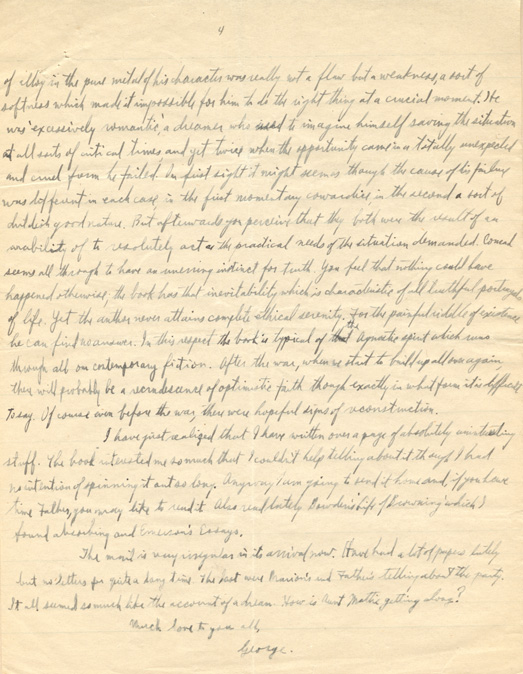 4
of alloy in the pure metal of his character was really not a flaw but a weakness, a sort of
softness which made it impossible for him to do the right thing at a crucial moment. He
was 'excessively romantic', a dreamer who used to imagine himself saving the situation
at all sorts of critical times and yet twice when the opportunity came in a totally unexpected
and cruel form he failed. On first sight it might seem as though the cause of his failure
was different in each case in the first momentary cowardice, in the second a sort of
childish good nature. But afterwards you perceive that they both were the result of an
inability of to resolutely act as the practical needs of the situation demanded. Conrad
seems all through to have an unerring instinct for truth. You feel that nothing could have
happened otherwise; the book has that inevitability which is characteristic of all truthful portrayals
of life. Yet the author never attains complete ethical serenity. For the painful riddle of existence
he can find no answer. In this respect the book is typical of the Agnostic spirit which runs
through all our contemporary fiction. After the war, when we start to build up all over again,
they will probably be a recrudescence of optimistic faith though exactly in what form it is difficult
to say. Of course even before the war, there were hopeful signs of reconstruction.
I have just realized that I have written over a page of absolutely uninteresting
stuff. The book interested me so much that I couldn't help telling about it though I had
no intention of spinning it out so long. Anyway I am going to send it home and, if you have
time Father, you may like to read it. Also read lately Dowden's 'Life of Browning' which I
found absorbing and Emerson's Essays.
The mail is very irregular in its arrival now. Have had a lot of papers lately
but no letters for quite a long time. The last were Marion's and Father's telling about the party.
It all seemed so much like the account of a dream. How is Aunt Mattie getting along?
Much love to you all,
George.